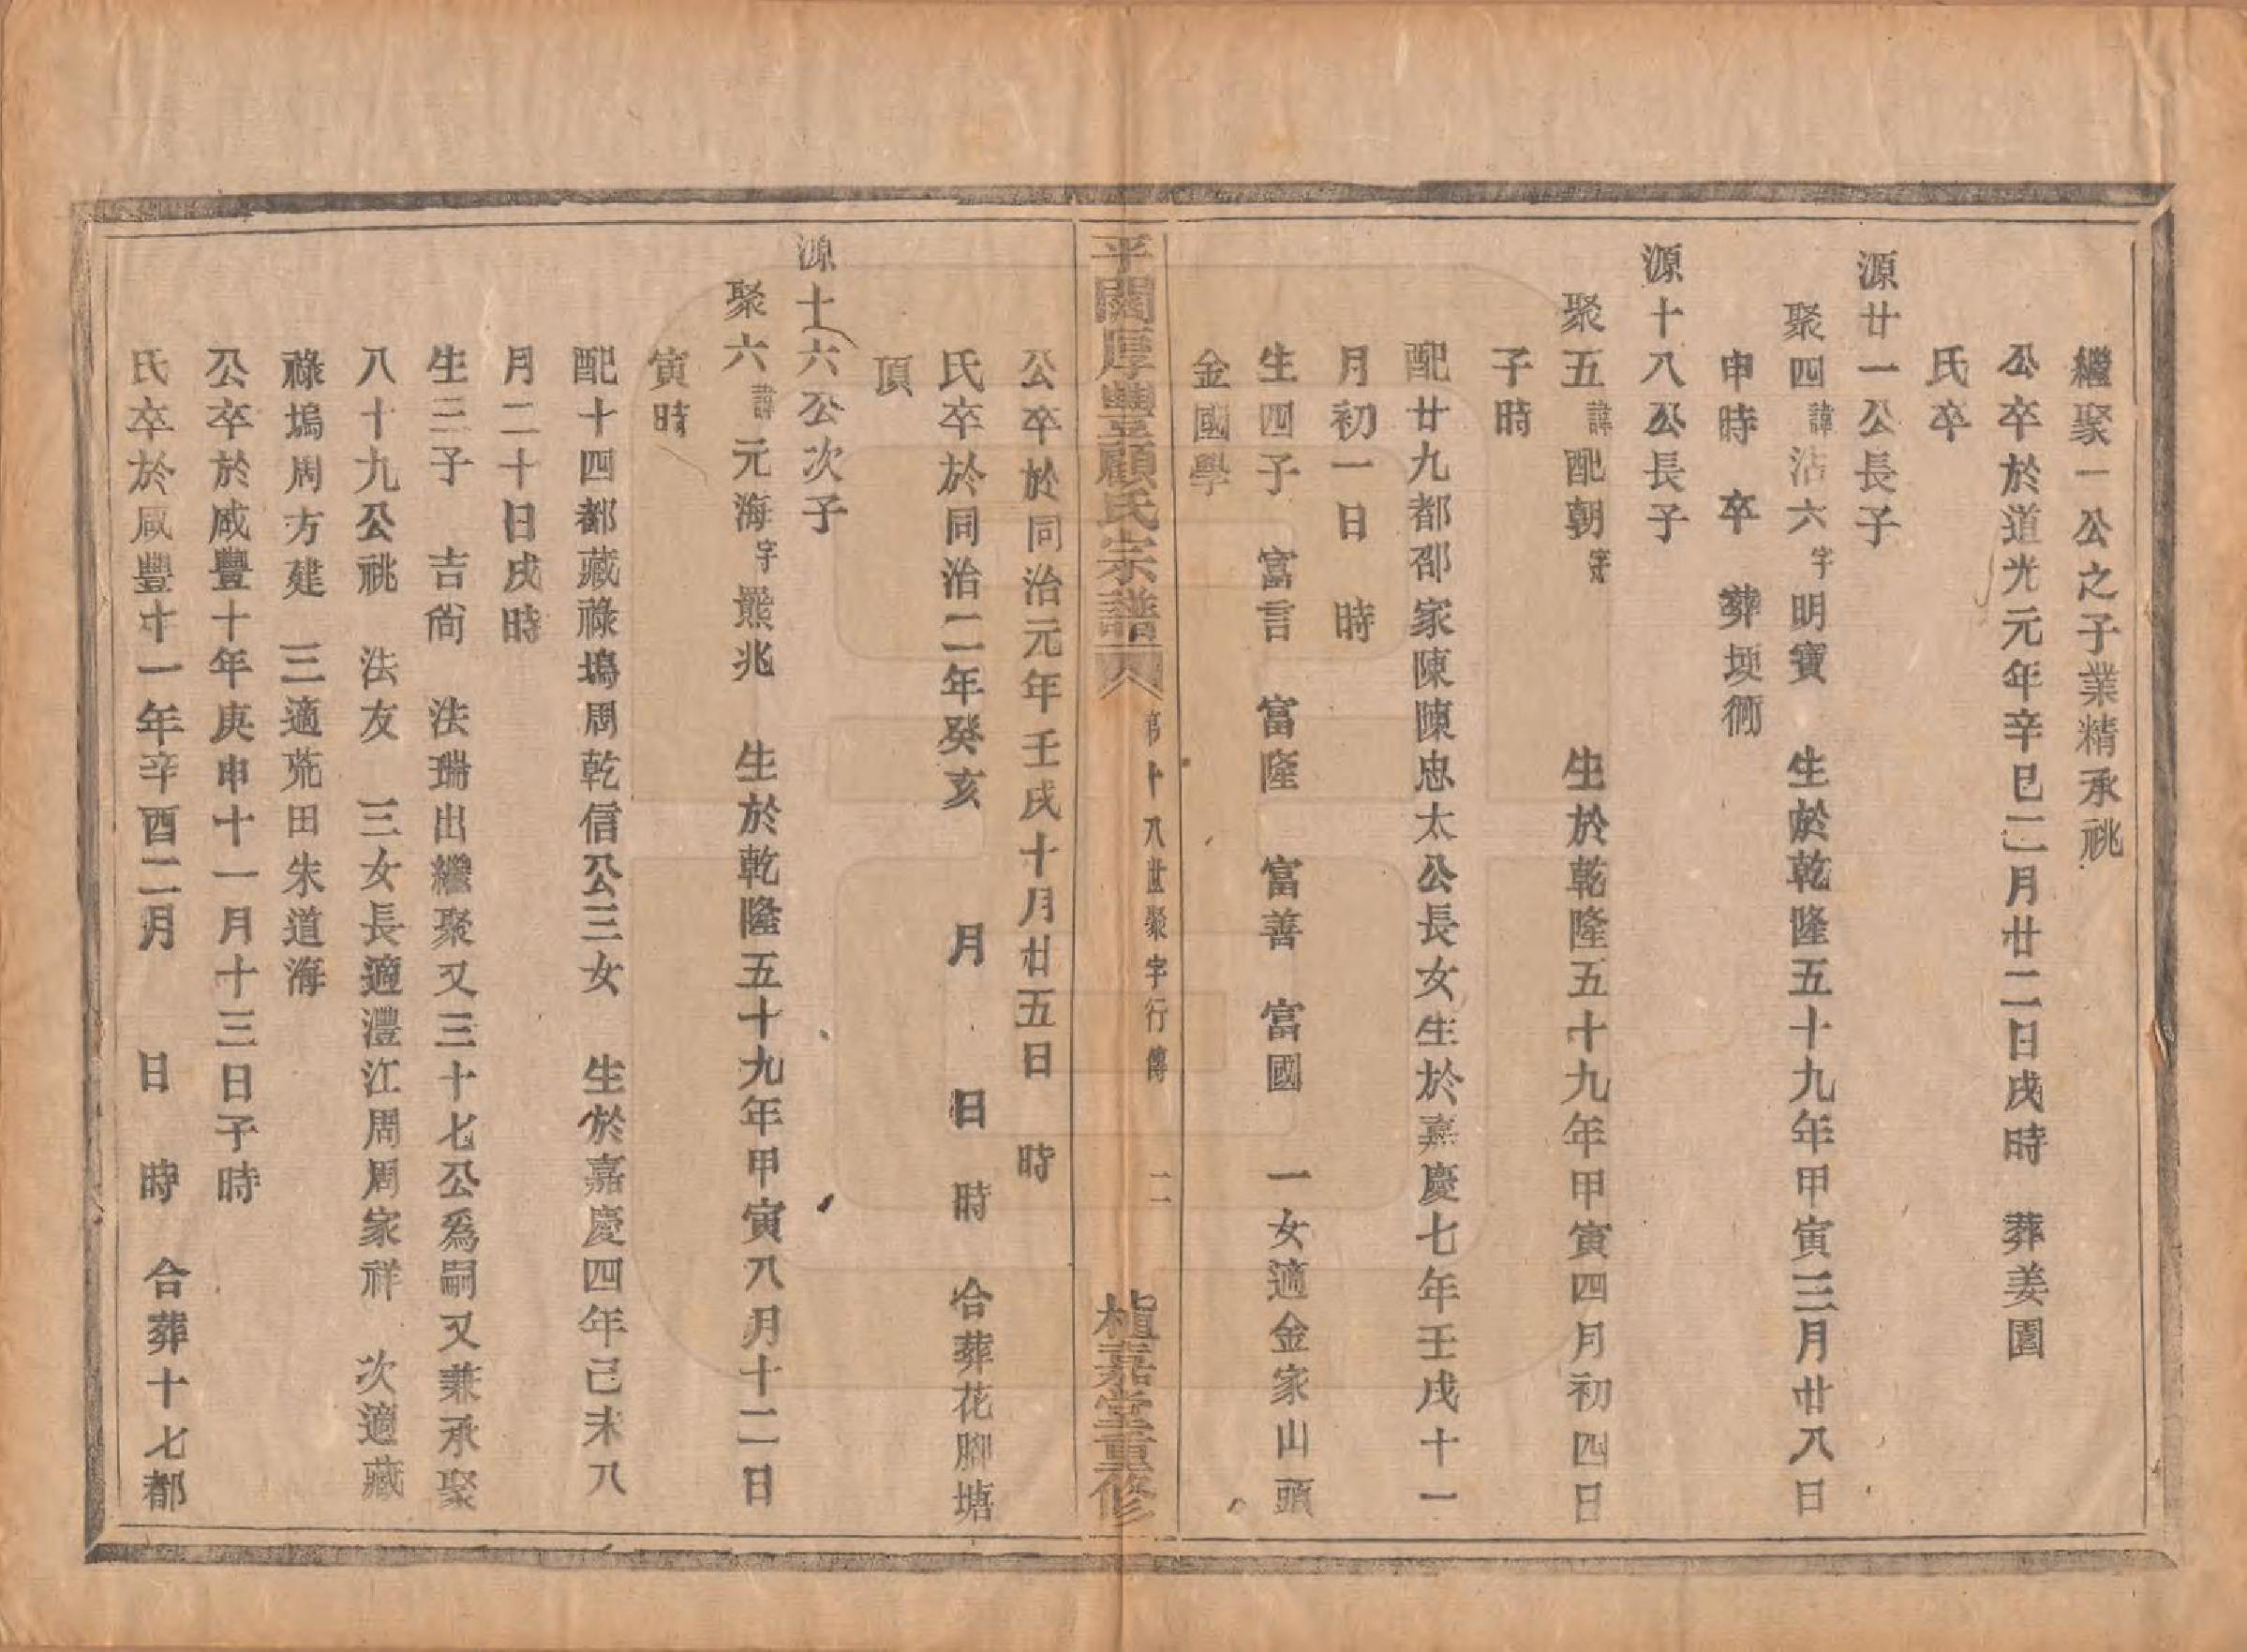 繼聚一公之子業精承祧
公卒於道光元年辛巳二月廿二日戌時　葬姜園
氏卒
源廿一公長子
聚四諱沾六字明寶　生於乾隆五十九年甲寅三月廿八日
申時　卒　葬埂衕
源十八公長子
聚五諱配朝字　生於乾隆五十九年甲寅四月初四日
子時
配廿九都邵家陳陳忠太公長女生於嘉慶七年壬戌十一
月初一日　時
生四子　富言　富隆　富善　富國　一女適金家山頭
金國學
平闊厚豐顧氏宗譜　第十八世聚字行傳　二　植嘉堂重修
公卒於同治元年壬戌十月廿五日　時
氏卒於同治二年癸亥　月　日　時　合葬花腳塘
頂
源十六公次子
聚六諱元海字羆兆　生於乾隆五十九年甲寅八月十二日
寅時
配十四都藏祿塢周乾信公三女　生於嘉慶四年己未八
月二十日戌時
生三子　吉尚　法瑞出繼聚又三十七公爲嗣又兼承聚
八十九公祧　法友　三女長適澧江周周家祥　次適藏
祿塢周方建　三適荒田朱道海
公卒於咸豐十年庚申十一月十三日子時
氏卒於咸豐十一年辛酉二月　日　時　合葬十七都